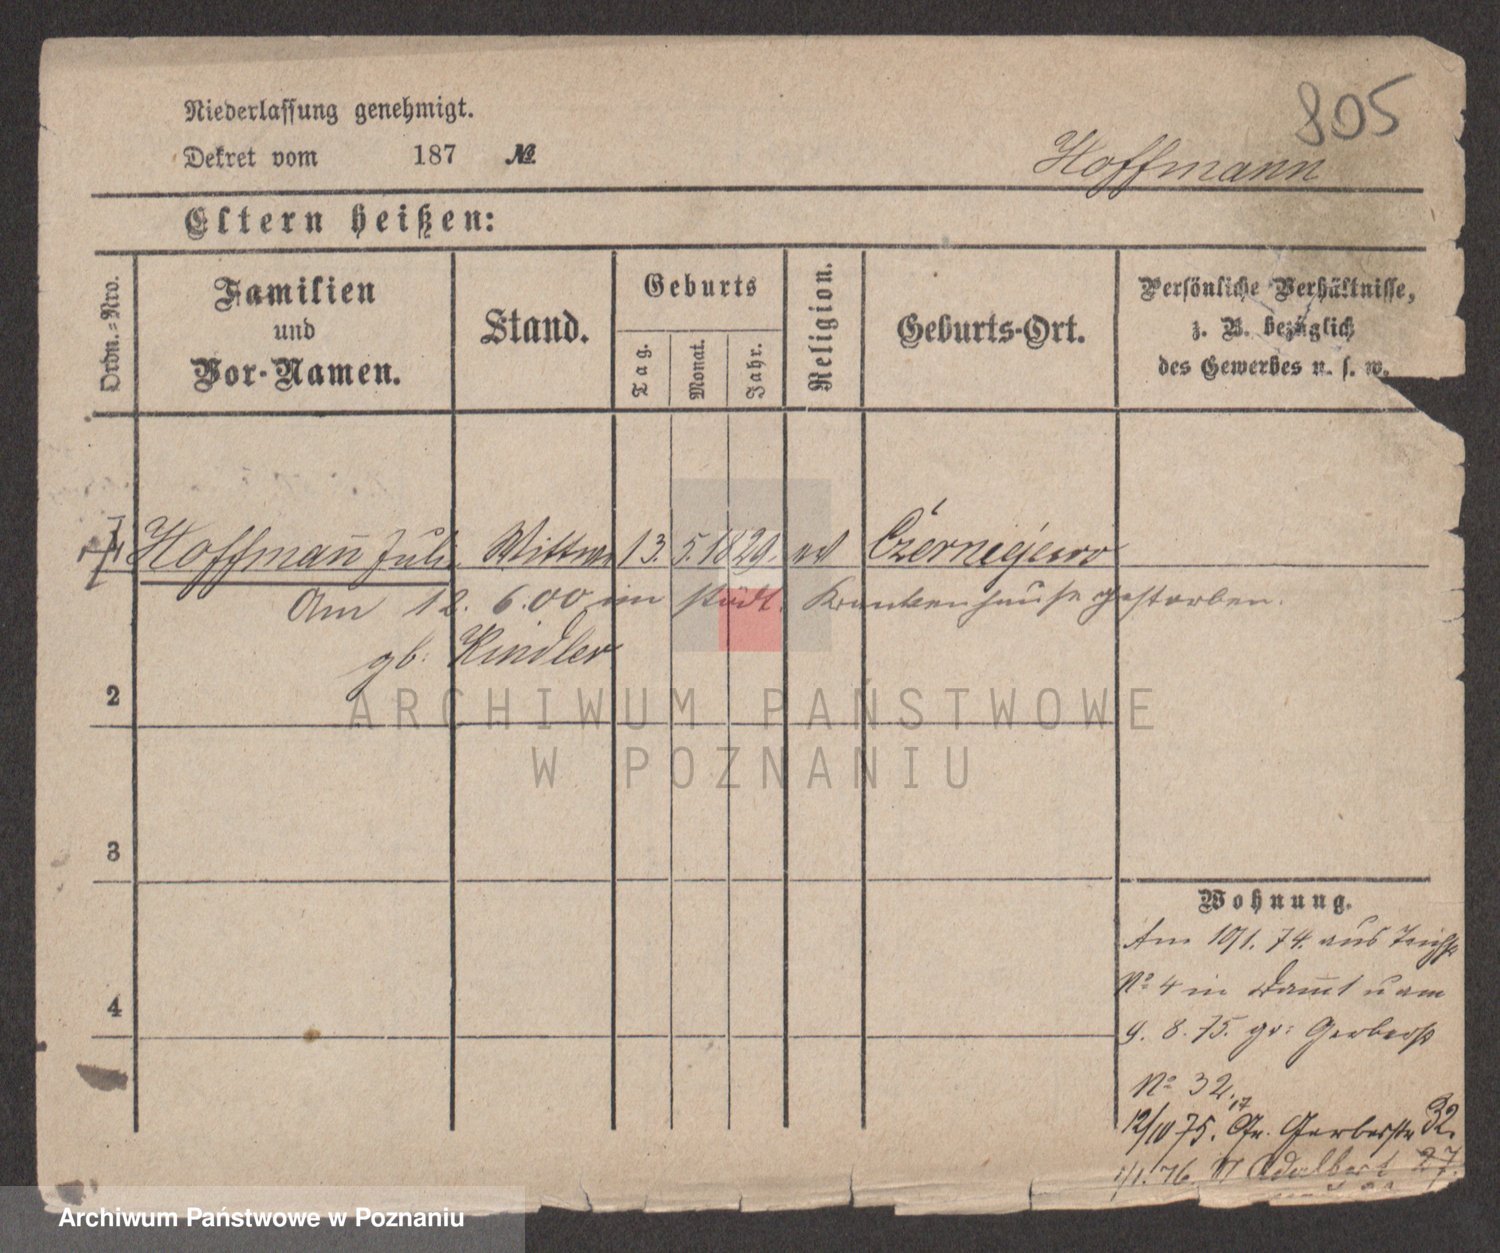 805
Niederlassung genehmigt.
Dekret vom 187 №
Hoffmann
Eltern heißen:
Ordn.=Nro.
Familien
und
Vor-Namen.
Stand.
Geburts
Tag.
Monat.
Jahr.
Religion.
Geburts-Ort.
Persönliche Verhältnisse,
z. B. bezüglich
des Gewerbes u. s. w.
1 Hoffmann̄ Julie Wittwe 13. 5. 1829. ev Czerniejewo
Am 12. 6. 00 im städt. Krankenhause gestorben.
gb. Kindler
2
3
4
Wohnung.
Am 10/1. 74. aus
№ 4 in u am
9. 8. 75. gr: Gerberst
№ 32.
17
12/10 75. Gr. Gerberstr 32.
1/1. 76. St Adalbert 27.
ARCHIWUM PAŃSTWOWE
W POZNANIU
Archiwum Państwowe w Poznaniu